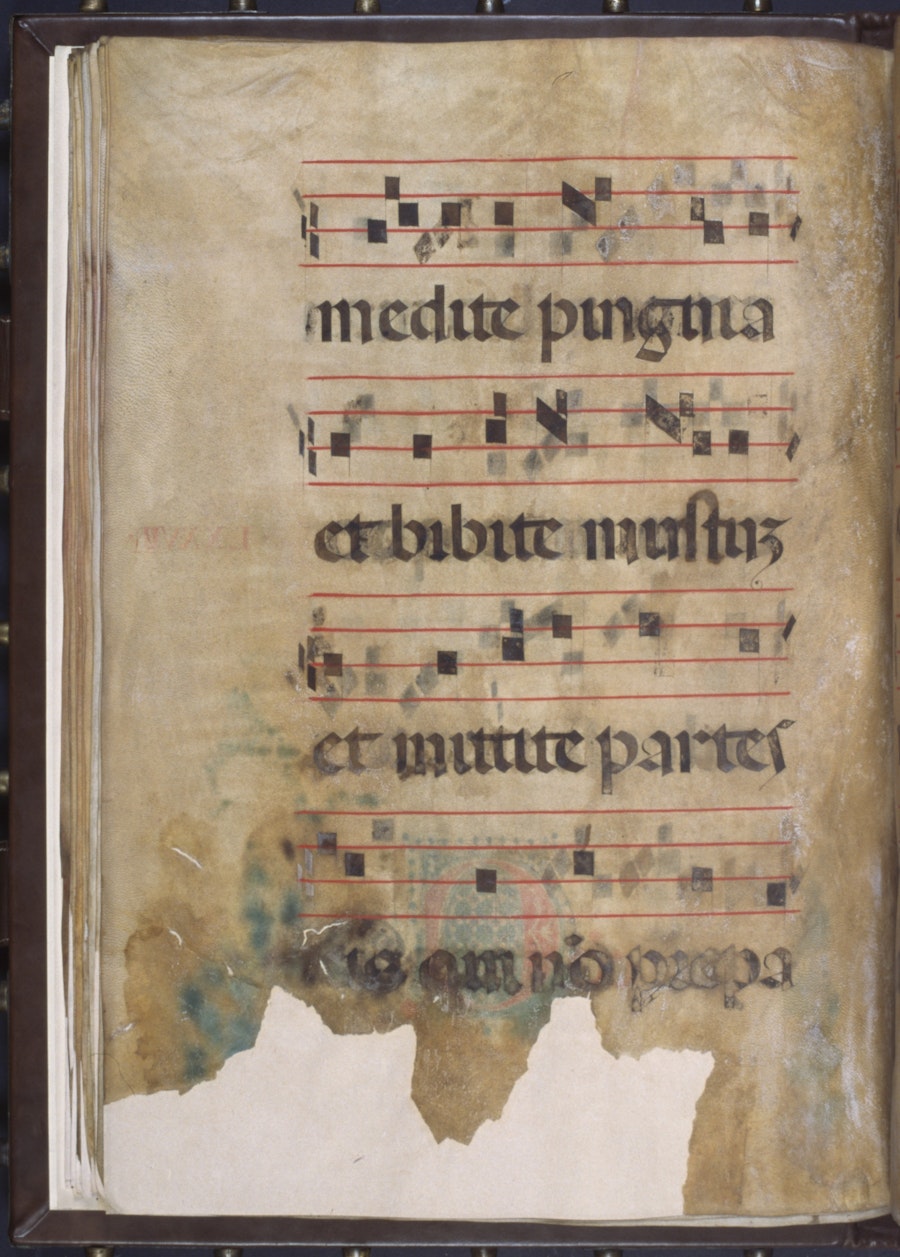 medite pinguia
et bibite mustuz
et mittite partes
is qui nõ prepa